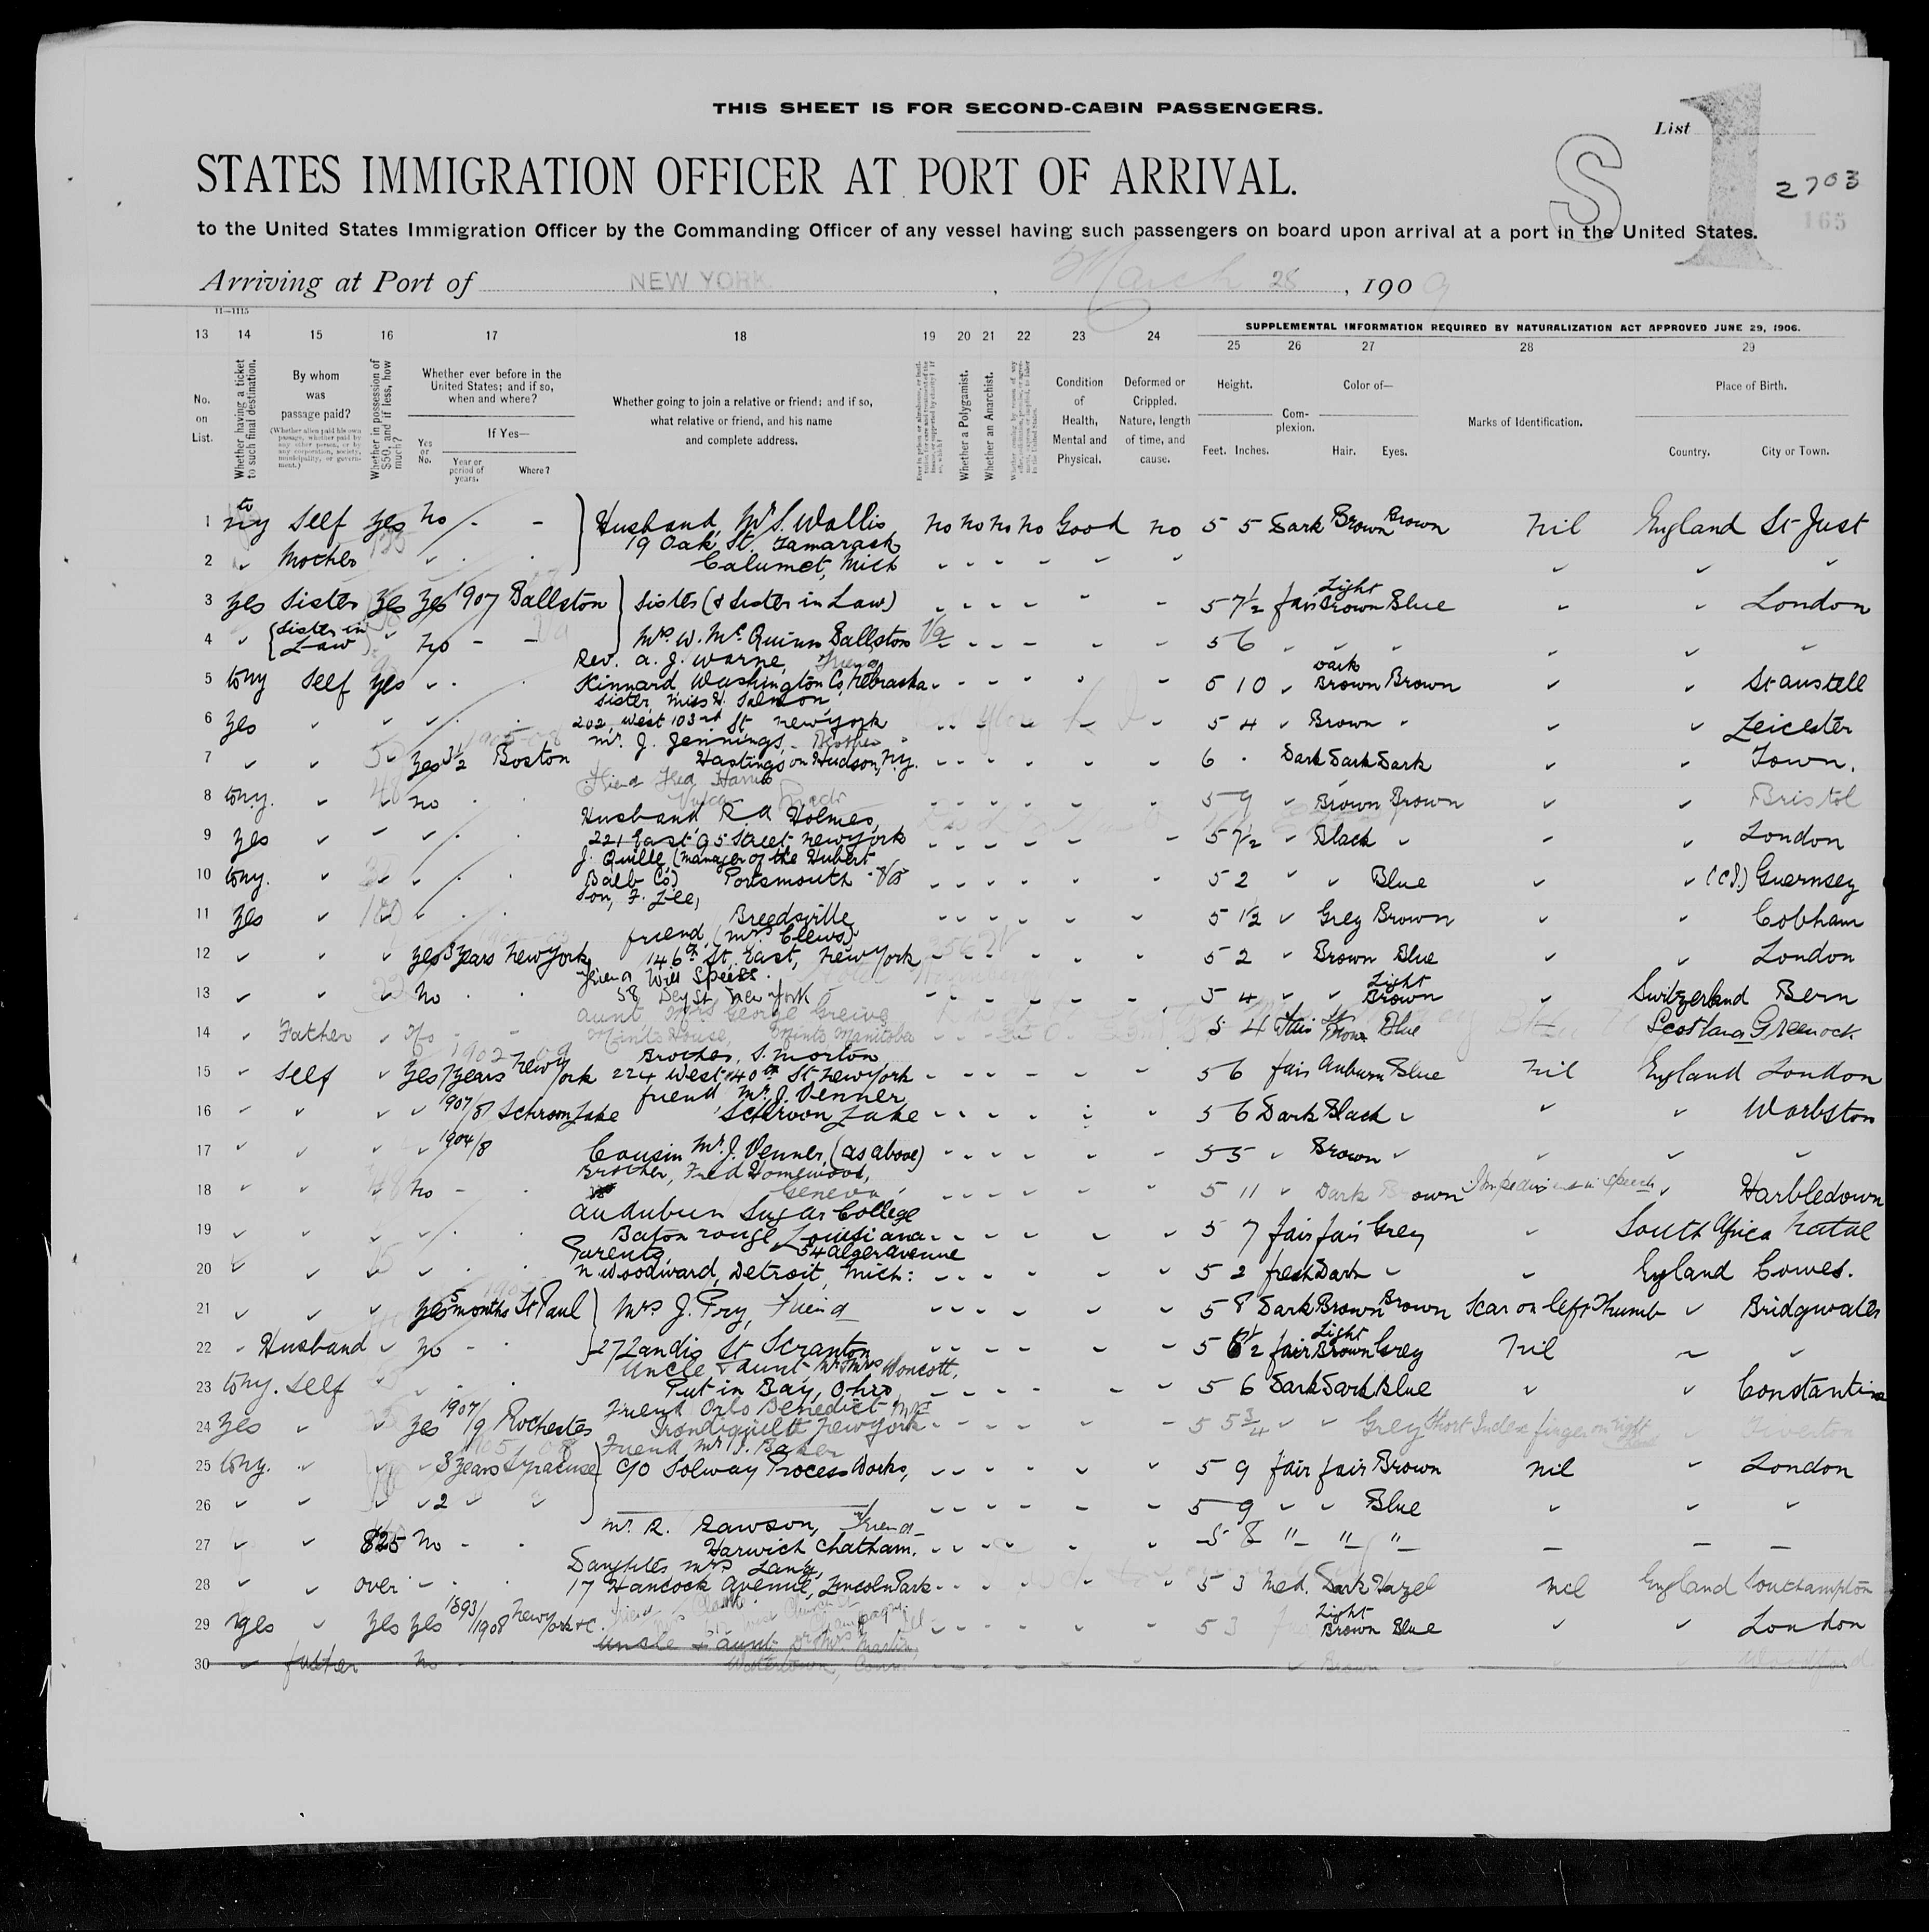 THIS SHEET IS FOR SECOND-CABIN PASSENGERS.
List
S 1
2703
165
STATES IMMIGRATION OFFICER AT PORT OF ARRIVAL.
to the United States Immigration Officer by the Commanding Officer of any vessel having such passengers on board upon arrival at a port in the United States.
Arriving at Port of NEW YORK, March 28, 1909
11—1115
SUPPLEMENTAL INFORMATION REQUIRED BY NATURALIZATION ACT APPROVED JUNE 29, 1906.
13 14 15 16 17 18 19 20 21 22 23 24 25 26 27 28 29
No. on List.
Whether having a ticket to such final destination.
By whom was passage paid?
(Whether alien paid his own passage, whether paid by any other person, or by any corporation, society, municipality, or government.)
Whether in possession of $50, and if less, how much?
Whether ever before in the United States; and if so, when and where?
Yes or No.
If Yes—
Year or period of years.
Where?
Whether going to join a relative or friend; and if so, what relative or friend, and his name and complete address.
Whether a Polygamist.
Whether an Anarchist.
Condition of Health, Mental and Physical.
Deformed or Crippled. Nature, length of time, and cause.
Height.
Feet. Inches.
Complexion.
Color of—
Hair. Eyes.
Marks of Identification.
Place of Birth.
Country. City or Town.
1 to ny Self yes no - - Husband, Mr S. Wallis no no no no Good no 5 5 Dark Brown Brown nil England St Just
19 Oak St. Tamarack
2 " Mother Calumet, Mich
3 yes Sister yes yes 1907 Ballston Sister (& Sister in Law) 5 7½ fair Light Brown Blue London
4 " {Sister in Law} " no - - Mrs W. Mc Quinn Ballston Va 5 6
Rev. A. J. Warne, Friend
5 to ny Self yes Kinnard Washington Co, Nebraska 5 10 Dark Brown Brown St Austell
Sister, Miss H. Salmon,
6 yes 202, West 103rd St New York 5 4 Brown Leicester
Mr. J. Jennings, - Brother
7 50 yes 3½ Boston Hastings on Hudson, N.Y. 6 Dark Dark Dark Town.
Friend Fred Harris
8 to ny. 48 no 5 9 Brown Brown Bristol
Husband R A Holmes,
9 yes 221 East 95 Street New York 5 7½ Black London
J. Quille (Manager of the Hubert
10 to ny. Balb Co) Portsmouth Va 5 2 Blue (C.I.) Guernsey
Son, F. Lee,
11 yes 100 Breedsville 5 1½ Grey Brown Cobham
friend, (Mrs Clews)
12 yes 3 years New York 146th St. East, New York 5 2 Brown Blue London
friend Will Speiss.
13 no 58 Dey St New York 5 4 Light Brown Switzerland Bern
Aunt Mrs George Greive
14 Father No - - Minto House, Minto Manitoba 5 4 Blue Scotland Greenock.
1902-09
Brother, S. Morton
15 Self yes 7 years New York 224 West 140th St New York 5 6 fair Auburn Blue nil England London
friend Mr. J. Venner
16 1907/8 Schroon Lake Schroon Lake 5 6 Dark Black Warbston
17 1904/8 Cousin Mr. J. Venner, (as above) 5 5 Brown
Brother, Fred Homewood,
18 48 no - Geneva 5 11 Dark Brown Impediment in speech Harbledown
Audubun Sugar College
19 Baton rouge Louisiana 5 7 fair fair Grey South Africa Natal
Parents 54 Alger Avenue
20 15 N Woodward, Detroit, Mich: 5 2 fresh Dark England Cowes.
21 yes 5 months St Paul Mrs J. Pry, Friend 5 8 Dark Brown Brown Scar on left Thumb Bridgwater
22 Husband no - 27 Landis St Scranton 5 6½ fair Light Brown Grey nil
Uncle & aunt, Mr & Mrs Woncott,
23 to ny. Self Put in Bay, Ohio 5 6 Dark Dark Blue Constantine
Friend Orlo Benedict
24 yes yes 1907/9 Rochester Irondiquett New York 5 5¾ Grey Short Index finger on right hand Tiverton
Friend Mr J. Baker
25 to ny. 3 years Syracuse C/o Solway Process Works, 5 9 fair fair Brown nil London
26 2 5 9 Blue
Mr. R. Rawson, Friend
27 825 no - Harwich Chatham. 5 8 " " "
Daughter Mrs Lang,
28 over 17 Hancock Avenue, Lincoln Park 5 3 Med. Dark Hazel nil England Southampton
29 yes yes yes 1893/1908 New York &c. 5 3 Light Brown Blue London
Uncle & aunt Dr & Mrs Martin,
30 father no - Watertown, Conn Brown Woodford